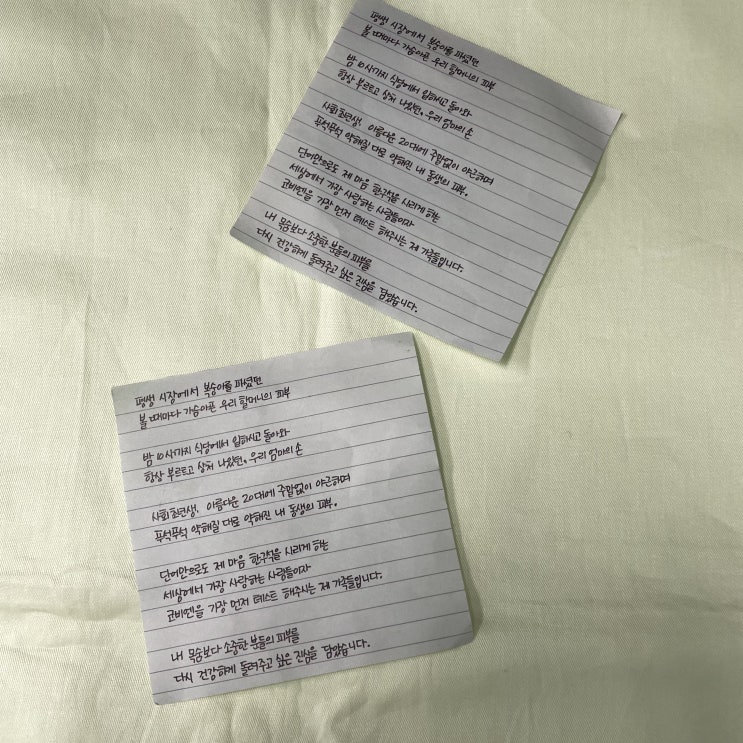 평생 시장에서 복숭아를 파셨던
볼 때마다 가슴아픈 우리 할머니의 피부
밤 10시까지 식당에서 일하시고 돌아와
항상 부르트고 상처 나있던, 우리 엄마의 손
사회초년생, 아름다운 20대에 주말없이 야근하며
푸석푸석 약해질 대로 약해진 내 동생의 피부.
단어만으로도 제 마음 한구석을 시리게 하는
세상에서 가장 사랑하는 사람들이자
코비엔을 가장 먼저 테스트 해주시는 제 가족들입니다.
내 목숨보다 소중한 분들의 피부를
다시 건강하게 돌려주고 싶은 진심을 담았습니다.
평생 시장에서 복숭아를 파셨던
볼 때마다 가슴아픈 우리 할머니의 피부
밤 10시까지 식당에서 일하시고 돌아와
항상 부르트고 상처 나있던, 우리 엄마의 손
사회초년생, 아름다운 20대에 주말없이 야근하며
푸석푸석 약해질 대로 약해진 내 동생의 피부.
단어만으로도 제 마음 한구석을 시리게 하는
세상에서 가장 사랑하는 사람들이자
코비엔을 가장 먼저 테스트 해주시는 제 가족들입니다.
내 목숨보다 소중한 분들의 피부를
다시 건강하게 돌려주고 싶은 진심을 담았습니다.